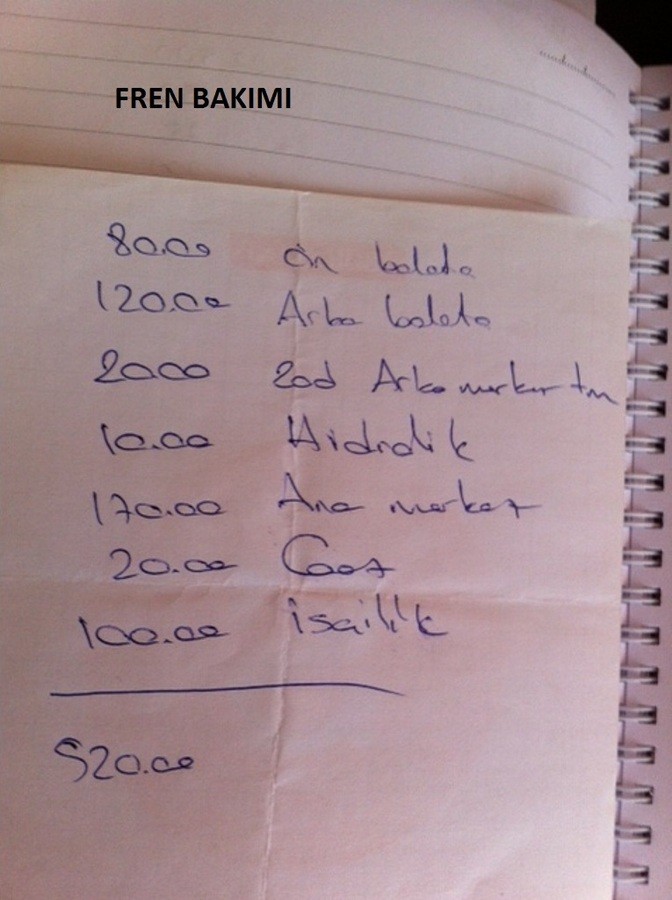 FREN BAKIMI
80.00 ön balata
120.00 Arka balata
20.00 2ad Arka merkez tm
10.00 Hidrolik
170.00 Ana merkez
20.00
100.00 işcilik
520.00